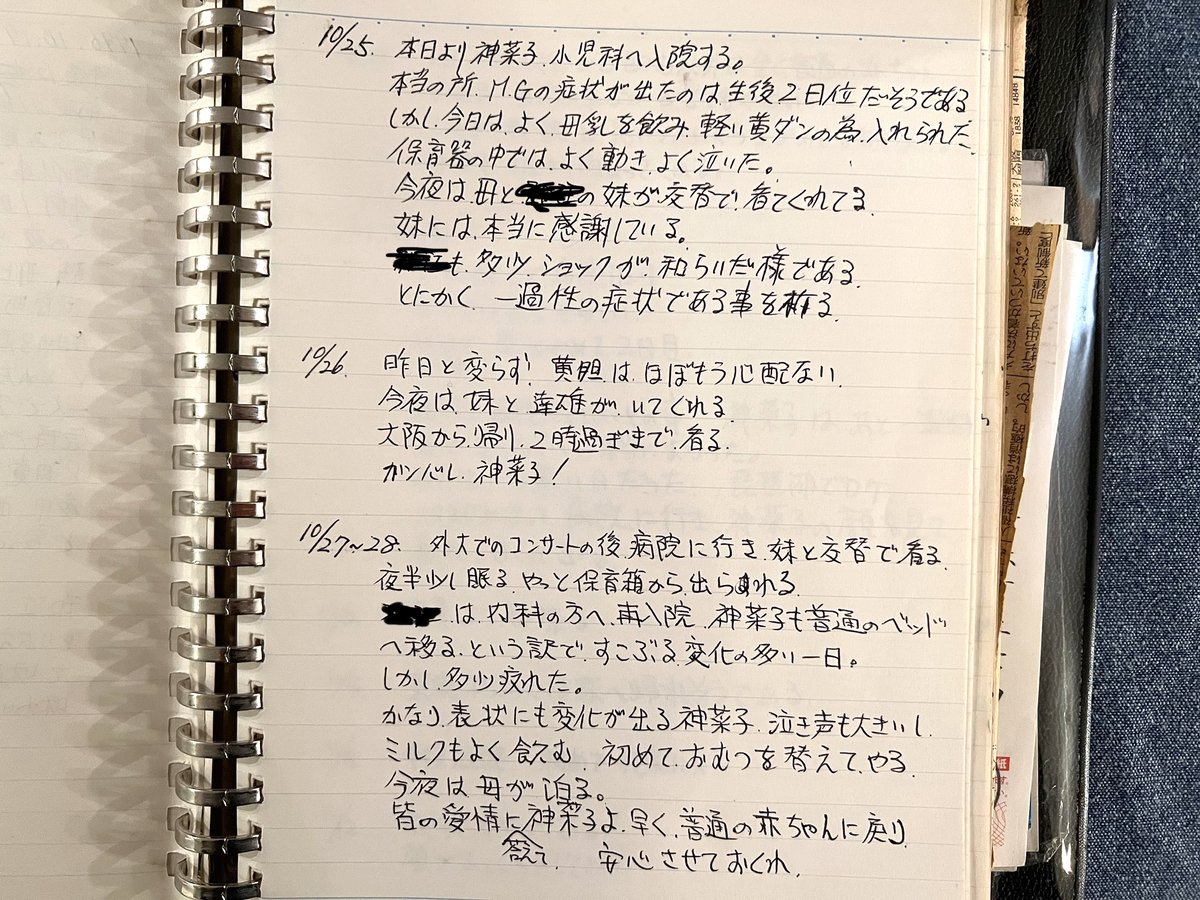 10/25. 本日より神菜子、小児科へ入院する。
本当の所、M.Gの症状が出たのは、生後2日位だそうである
しかし、今日は、よく、母乳を飲み、軽い黄ダンの為、入れられた、
保育器の中では、よく動き、よく泣いた。
今夜は、母と の妹が交替で、看てくれてる、
妹には、本当に感謝している。
も、多少、ショックが、和らいだ様である、
とにかく、一過性の症状である事を祈る、
10/26. 昨日と変らず! 黄胆は、ほぼもう心配ない、
今夜は、妹と達雄が、いてくれる、
大阪から、帰り、2時過ぎまで、看る、
ガンバレ、神菜子!
10/27~28. 外大でのコンサートの後、病院に行き、妹と交替で看る、
夜半少し眠る、やっと保育箱から、出られる、
は、内科の方へ、再入院、神菜子も普通のベッド
へ移る、という訳で、すこぶる、変化の多い一日。
しかし、多少疲れた。
かなり、表状にも変化が出る神菜子、泣き声も大きいし、
ミルクもよく飲む、初めて、おむつを替えて、やる、
今夜は、母が泊る。
皆の愛情に答えて、神菜子よ、早く、普通の赤ちゃんに戻り、
安心させておくれ、